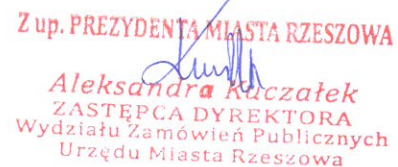 Z up. PREZYDENTA MIASTA RZESZOWA
Aleksandra Kaczałek
ZASTĘPCA DYREKTORA
Wydziału Zamówień Publicznych
Urzędu Miasta Rzeszowa